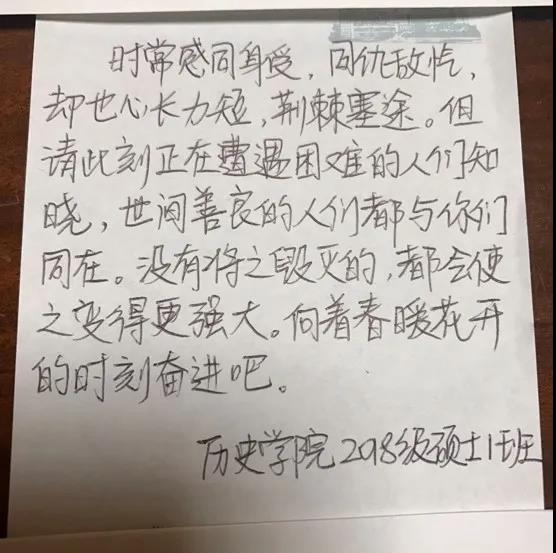 时常感同身受，同仇敌忾，
却也心长力短，荆棘塞途。但
请此刻正在遭遇困难的人们知
晓，世间善良的人们都与你们
同在。没有将之毁灭的，都会使
之变得更强大。向着春暖花开
的时刻奋进吧。
历史学院2018级硕士1班